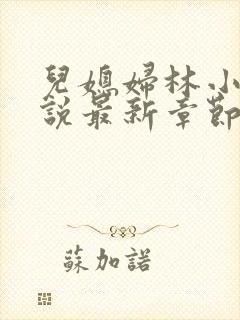 兒媳婦林小
說最新章節
蘇加諾